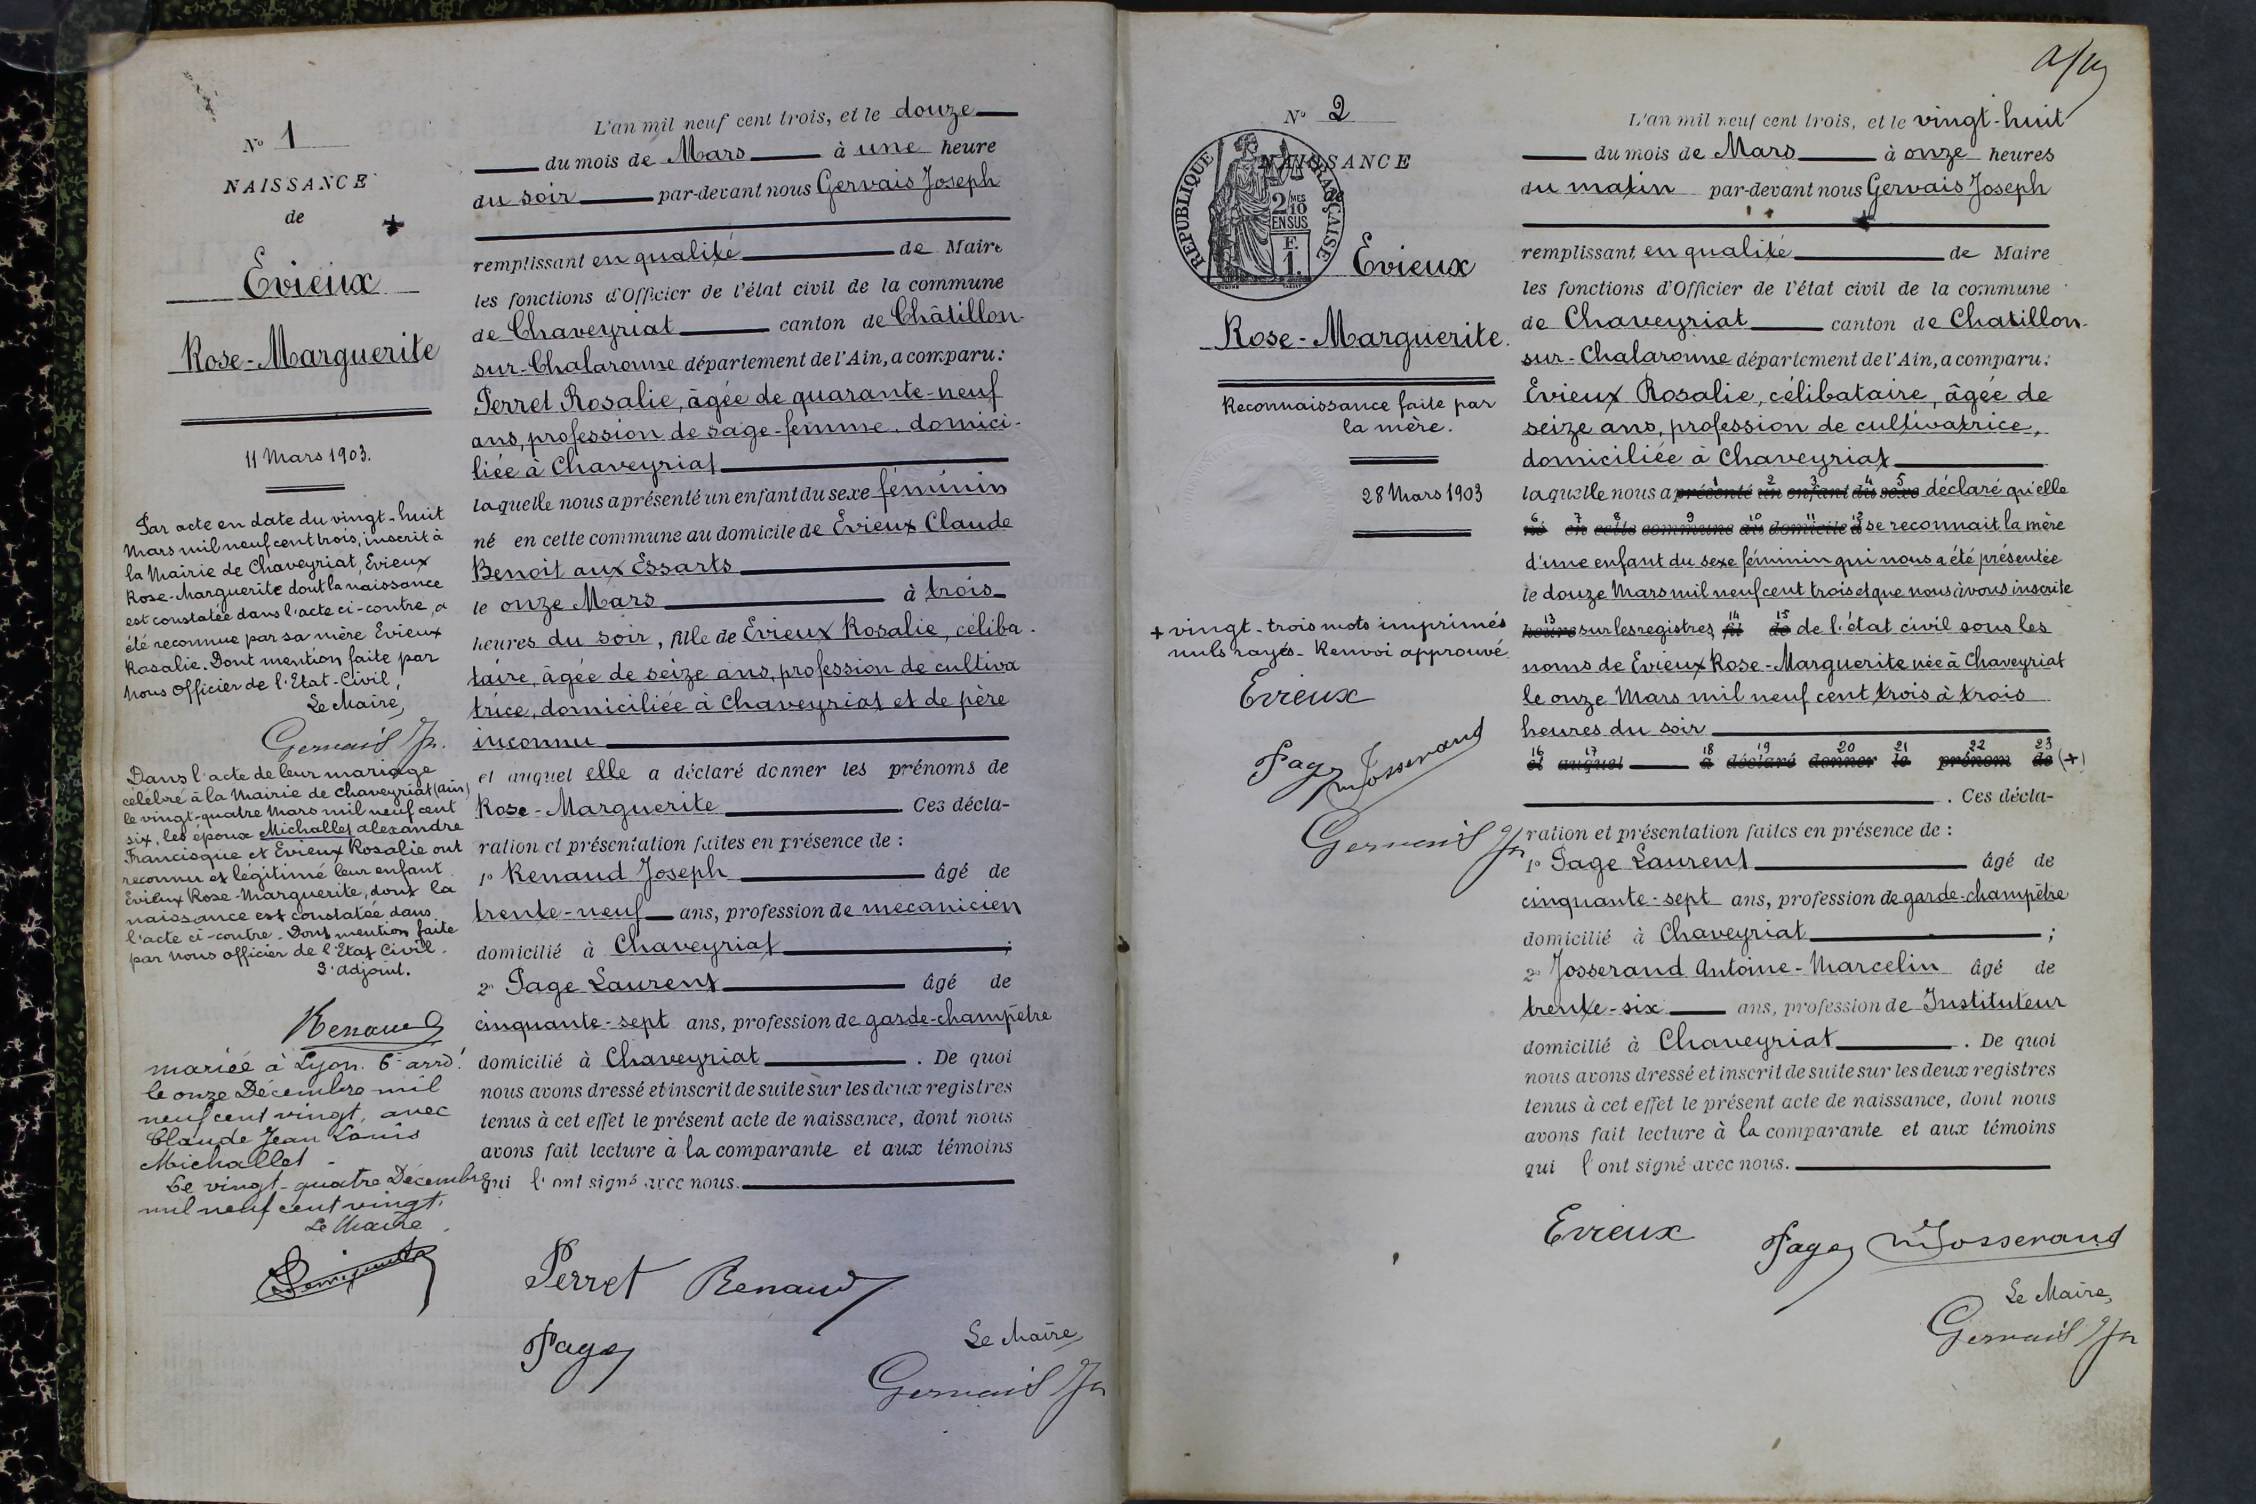 N° 1
NAISSANCE
de
Evieux
Rose-Marguerite
11 Mars 1903.
Par acte en date du vingt-huit
Mars mil neuf cent trois, inscrit à
la Mairie de Chaveyriat, Evieux
Rose-Marguerite dont la naissance
est constatée dans l'acte ci-contre, a
été reconnue par sa mère Evieux
Rosalie. Dont mention faite par
Nous Officier de l'Etat-Civil,
Le Maire,
Gervais
Dans l'acte de leur mariage
célébré à la Mairie de Chaveyriat (Ain)
le vingt-quatre Mars mil neuf cent
six, les époux Michallet Alexandre
Francisque et Evieux Rosalie ont
reconnu et légitimé leur enfant
Evieux Rose-Marguerite, dont la
naissance est constatée dans
l'acte ci-contre. Dont mention faite
par Nous Officier de l'Etat Civil.
L'adjoint.
Renaud
mariée à Lyon. 6e arrd.
le onze Décembre mil
neuf cent vingt, avec
Claude Jean Louis
Michallet -
Le vingt-quatre Décembre
mil neuf cent vingt.
Le Maire
L'an mil neuf cent trois, et le douze
du mois de Mars à une heure
du soir par-devant nous Gervais Joseph
remplissant en qualité de Maire
les fonctions d'Officier de l'état civil de la commune
de Chaveyriat canton de Châtillon-
sur-Chalaronne département de l'Ain, a comparu :
Perret Rosalie, âgée de quarante-neuf
ans, profession de sage-femme, domici-
liée à Chaveyriat
laquelle nous a présenté un enfant du sexe féminin
né en cette commune au domicile de Evieux Claude
Benoit aux Essarts
le onze Mars à trois
heures du soir, fille de Evieux Rosalie, céliba-
taire, âgée de seize ans, profession de cultiva
trice, domiciliée à Chaveyriat et de père
inconnu
et auquel elle a déclaré donner les prénoms de
Rose-Marguerite Ces décla-
ration et présentation faites en présence de :
1° Renaud Joseph âgé de
trente-neuf ans, profession de mecanicien
domicilié à Chaveyriat ;
2° Page Laurent âgé de
cinquante-sept ans, profession de garde-champêtre
domicilié à Chaveyriat . De quoi
nous avons dressé et inscrit de suite sur les deux registres
tenus à cet effet le présent acte de naissance, dont nous
avons fait lecture à la comparante et aux témoins
qui l'ont signé avec nous.
Perret Renaud
Page
Le Maire,
Gervais
N° 2
NAISSANCE
de
REPUBLIQUE FRANÇAISE
2/10 MES
EN SUS
F.
1.
Evieux
Rose-Marguerite.
Reconnaissance faite par
la mère.
28 Mars 1903
+ vingt-trois mots imprimés
nuls rayés. Renvoi approuvé
Evieux
Page Josserand
Gervais
L'an mil neuf cent trois, et le vingt-huit
du mois de Mars à onze heures
du matin par-devant nous Gervais Joseph
remplissant en qualité de Maire
les fonctions d'Officier de l'état civil de la commune
de Chaveyriat canton de Chatillon-
sur-Chalaronne département de l'Ain, a comparu :
Evieux Rosalie, célibataire, âgée de
seize ans, profession de cultivatrice,
domiciliée à Chaveyriat
1 2 3 4 5
laquelle nous a présenté un enfant du sexe déclaré qu'elle
6 7 8 9 10 11 12
né en cette commune au domicile d se reconnait la mère
d'une enfant du sexe féminin qui nous a été présentée
le douze Mars mil neuf cent trois et que nous avons inscrite
13 14 15
heures sur les registres fil de de l'état civil sous les
noms de Evieux Rose-Marguerite née à Chaveyriat
le onze Mars mil neuf cent trois à trois
heures du soir
16 17 18 19 20 21 22 23
et auquel a déclaré donner le prénom de (+)
. Ces décla-
ration et présentation faites en présence de :
1° Page Laurent âgé de
cinquante-sept ans, profession de garde-champêtre
domicilié à Chaveyriat ;
2° Josserand Antoine-Marcelin âgé de
trente-six ans, profession de Instituteur
domicilié à Chaveyriat . De quoi
nous avons dressé et inscrit de suite sur les deux registres
tenus à cet effet le présent acte de naissance, dont nous
avons fait lecture à la comparante et aux témoins
qui l'ont signé avec nous.
Evieux Page Josserand
Le Maire,
Gervais